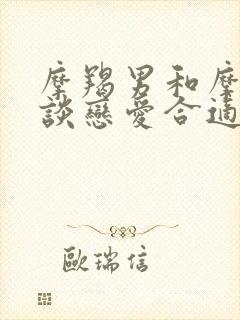 摩羯男和摩
談戀愛合適
歐瑞信